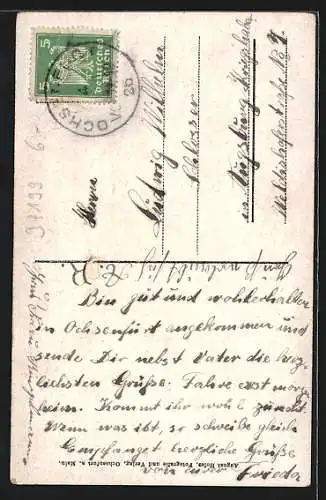 5
5
Deutsches
Reich
OCHSENF
26
Herrn
Ludwig Wilhelm
Schlosser
in Augsburg
97199 6-9
Bin gut und wohlerhalten
in Ochsenfurt angekommen und
sende Dir nebst Vater die herz-
lichsten Grüße. Fahre erst morgen
heim. Kommt ihr wohl zurecht.
Wenn was ist, so schreibe gleich
Empfanget herzliche Grüße
von eurer Frieda
August Photografie und Verlag, Ochsenfurt a. Main.